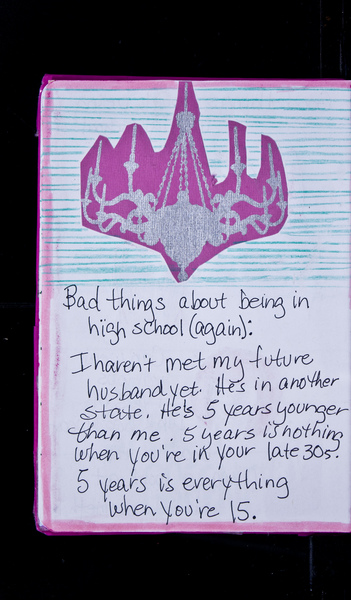 Bad things about being in
high school (again):
I haven't met my future
husband yet. He's in another
state. He's 5 years younger
than me. 5 years is nothing
when you're in your late 30s.
5 years is everything
when you're 15.